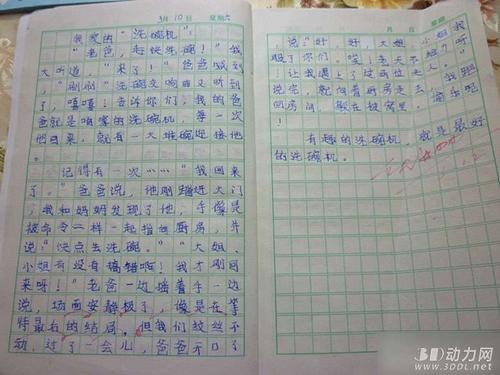 3月10日 星期六
我家的“洗碗机”
“老爸，赶快洗碗！”我
大叫道，“来了！”爸爸喊到
，“刷刷”洗碗交响曲又听到
了，嘻嘻！告诉你们，我的爸
爸就是咱家的洗碗机，等一次
他回来，就有一大堆碗迎接他
。
记得有一次……“我回来
了。”爸爸说，他刚踏进大门
，我和妈妈发现了他，手像是
被命令一样一起指向厨房，并
说“快点去洗碗。”“大姐、
小姐有没有搞错啊！我才刚回
来呀！”老爸一边捂着手一边
说，场面安静极了，像是在等
待最后的结局，但我们纹丝不
动，过了一会儿，爸爸开口了
月 日 星期
，说“好，好，大姐、小姐我
服了你们，唉！老天不
！让我遇上了这两位
说完，就向着厨房走去
回房间，躲在被窝里，偷乐呢
！
有趣的洗碗机，就是最好
的洗碗机。
3D动力网
www.3DDL.net